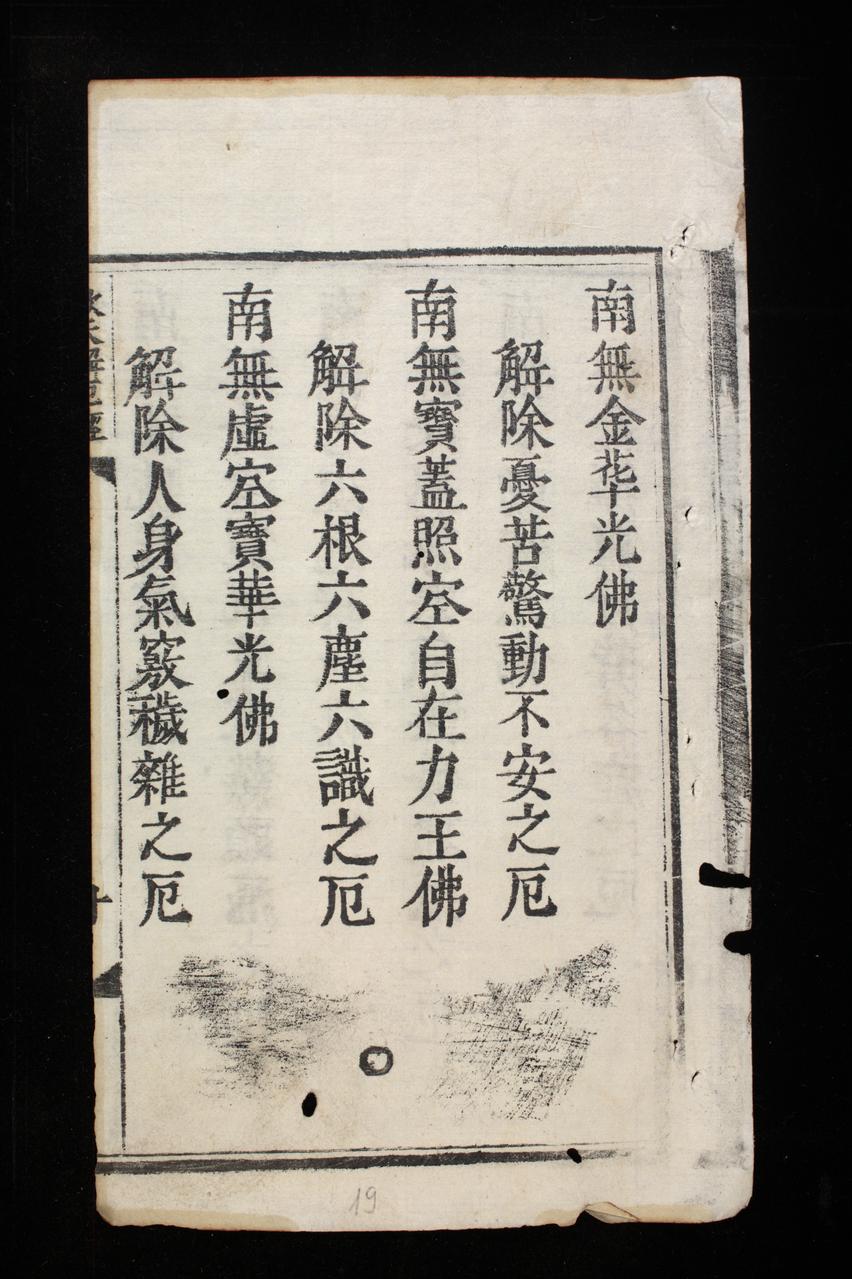 南無金華光佛
解除憂苦驚動不安之厄
南無寶蓋照空自在力王佛
解除六根六塵六識之厄
南無虛空寶華光佛
解除人身氣竅穢雜之厄
19